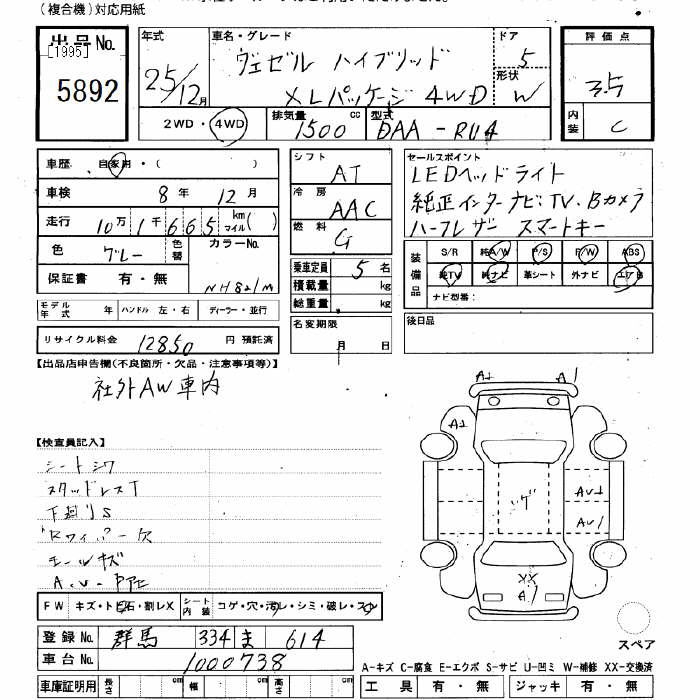 (複合機)対応用紙
出品No.
[1995]
5892
年式
25/12月
車名・グレード
ヴェゼル ハイブリッド
XLパッケージ 4WD
ドア
5
形状
W
評価点
3.5
内装
C
2WD・4WD
排気量
1500 cc
型式
DAA-RU4
車歴 自家用・( )
車検 8年 12月
走行 10万1千665 km マイル( )
色 グレー 色替 カラーNo.
NH821M
保証書 有・無
シフト
AT
冷房
AAC
燃料
G
乗車定員 5名
積載量 kg
総重量 kg
セールスポイント
LEDヘッドライト
純正インターナビ・TV・Bカメラ
ハーフレザー スマートキー
装備品
S/R 純A/W P/S P/W ABS
純TV 純ナビ 革シート 外ナビ エアB
ナビ型番:
モデル年式 年 ハンドル 左・右 ディーラー・並行
リサイクル料金 12850 円 預託済
名変期限
月 日
後日品
【出品店申告欄(不良箇所・欠品・注意事項等)】
社外AW車内
【検査員記入】
シートシワ
スタッドレスT
下廻りS
Rワイパー欠
モールキズ
A.U-
A1
A1
A1
AU1
AU1
XX
A1
FW キズ・ト石・割レX シート内装 コゲ・穴・汚レ・シミ・破レ・スレ
登録No. 群馬 334 ま 614
車台No. 1000738
スペア
A-キズ C-腐食 E-エクボ S-サビ U-凹ミ W-補修 XX-交換済
車庫証明用 長さ cm 幅 cm 高さ cm
工具 有・無 ジャッキ 有・無